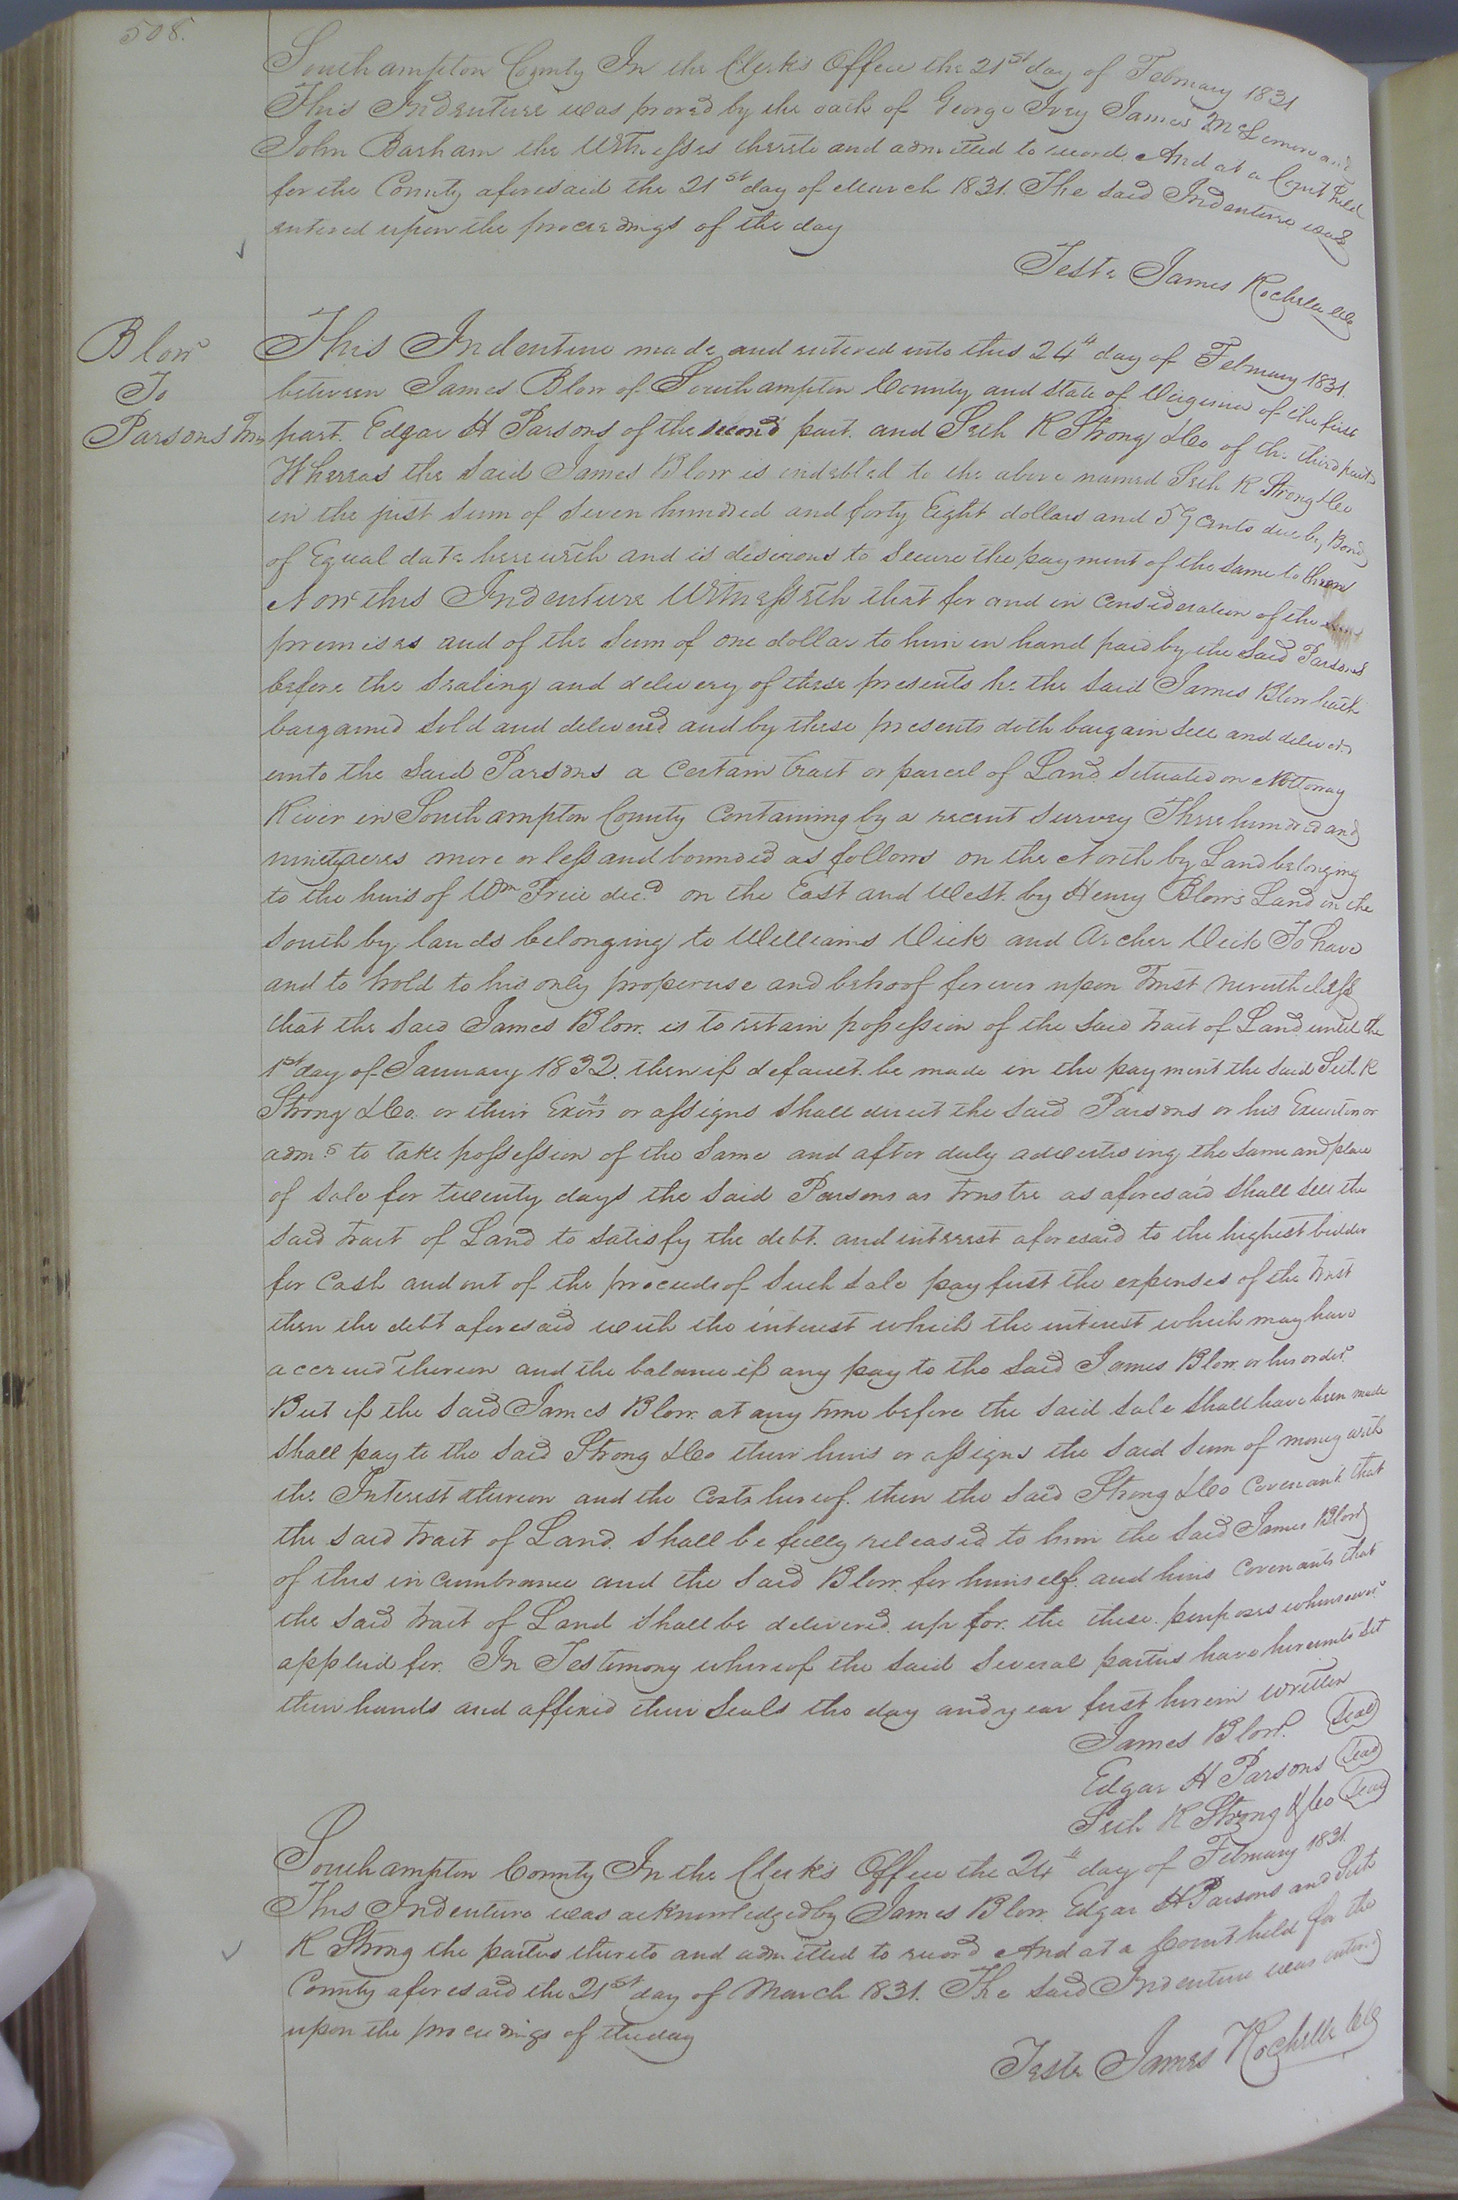 508.
Southampton County In the Clerk's Office the 21st day of February 1831
This Indenture was proved by the oath of George Ivey James McLemore and
John Barham the Witnesses thereto and admitted to record. And at a Court held
for the County aforesaid the 21st day of March 1831. The said Indenture was
entered upon the proceedings of the day
Teste James Rochelle Clk
Blow
To
Parsons Trs
This Indenture made and entered into this 24th day of February 1831.
between James Blow of Southampton County and State of Virginia of the first
part. Edgar H Parsons of the second part. and Seth K Strong & Co of the third part
Whereas the said James Blow is indebted to the above named Seth K Strong & Co
in the just sum of Seven hundred and forty Eight dollars and 57 cents due by Bond
of Equal date herewith and is desirous to secure the payment of the same to them
Now this Indenture Witnesseth that for and in consideration of the
premises and of the Sum of one dollar to him in hand paid by the said Parsons
before the sealing and delivery of these presents he the said James Blow hath
bargained sold and delivered and by these presents doth bargain sell and deliver
unto the said Parsons a certain tract or parcel of Land situated on Nottoway
River in Southampton County Containing by a recent survey Three hundred and
ninety acres more or less and bounded as follows on the North by Land belonging
to the heirs of Wm Price decd on the East and West by Henry Blow's Land on the
South by lands belonging to Williams Vick and Archer Vick To have
and to hold to his only proper use and behoof forever upon Trust nevertheless
that the said James Blow is to retain possession of the said tract of Land until the
1st day of January 1832. then if default be made in the payment the said Seth K
Strong & Co. or their Exors or assigns shall direct the said Parsons or his Executor or
adms to take possession of the same and after duly advertising the same and place
of sale for twenty days the said Parsons as trustee as aforesaid shall sell the
said tract of Land to satisfy the debt. and interest aforesaid to the highest bidder
for Cash and out of the proceeds of such sale pay first the expenses of the trust
then the debt aforesaid with the interest which the interest which may have
accrued thereon and the balance if any pay to the said James Blow or his order.
But if the said James Blow at any time before the said sale shall have been made
shall pay to the said Strong & Co their heirs or assigns the said sum of money with
the Interest thereon and the costs hereof. then the said Strong & Co Covenant that
the said tract of Land shall be fully released to him the said James Blow
of this incumbrance and the said Blow for himself and heirs Covenants that
the said tract of Land shall be delivered up for the these purposes whensoever
applied for. In Testimony whereof the said several parties have hereunto set
their hands and affixed their Seals the day and year first herein written
James Blow. Seal
Edgar H Parsons Seal
Seth K Strong & Co Seal
Southampton County In the Clerk's Office the 24th day of February 1831.
This Indenture was acknowledged by James Blow Edgar H Parsons and Seth
K Strong the parties thereto and admitted to record And at a Court held for the
County aforesaid the 21st day of March 1831. The said Indenture was entered
upon the proceedings of the day
Teste James Rochelle Clk